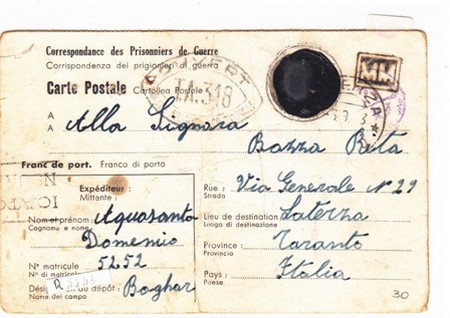 Correspondance des Prisonniers de Guerre
Corrispondenza dei prigionieri di guerra
Carte Postale Cartolina Postale
OUVERT
TA.318
A Alla Signora
A
Bazza Reta
Franc de port. Franco di porto
Expéditeur:
Mittente:
Nom et prénom: Aquosanto
Cognome e nome
Domenico
N° matricule 5252
N° di matricola
Dési du dépôt: Boghar
Nome del campo
Rue: Via Generole N° 29
Strada
Lieu de destination Laterza
Luogo di destinazione
Province: Taranto
Provincia
Pays: Italia
Paese:
30